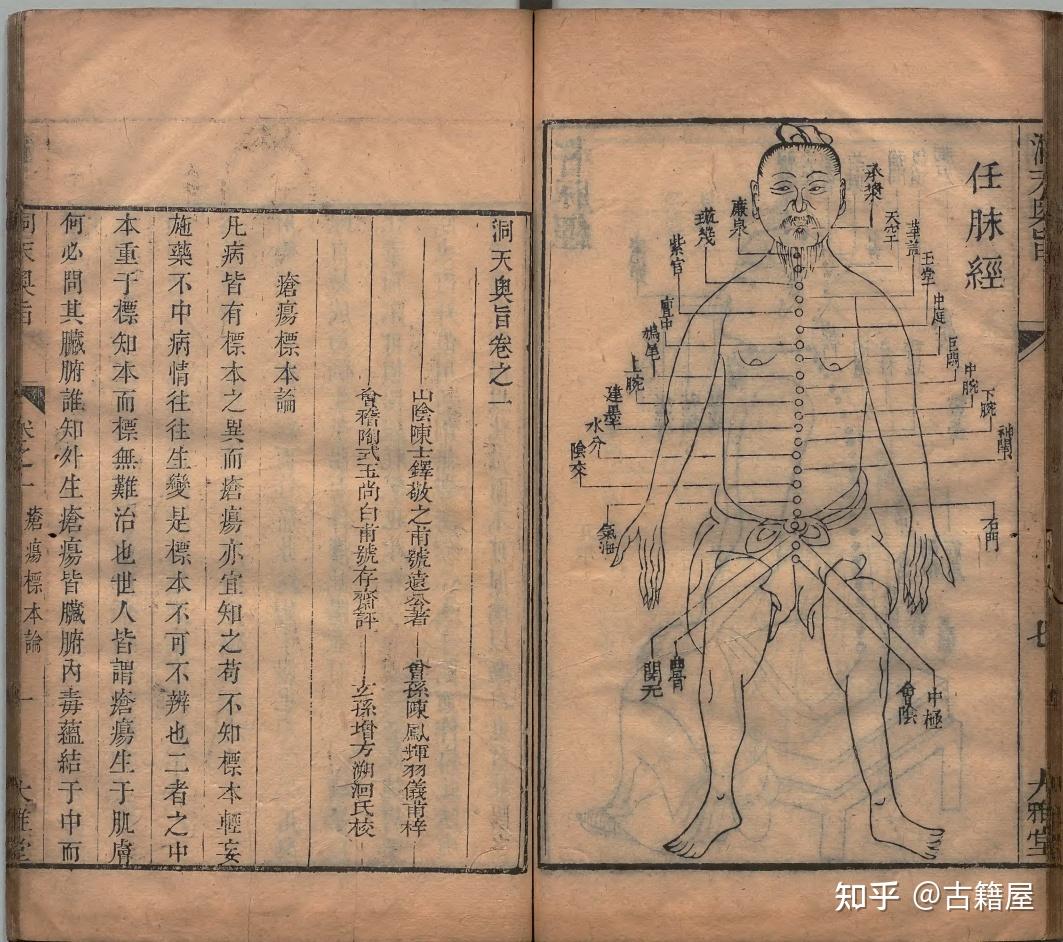 任脉經
承漿
天突
華蓋
玉堂
中庭
巨闕
中脘
下脘
神闕
石門
中極
會陰
廉泉
璇璣
紫宫
膻中
鳩尾
上脘
建里
水分
陰交
氣海
曲骨
関元
洞天奥旨
七
大雅堂
洞天奥旨卷之一
山陰陳士鐸敬之甫號遠公著
曾孫陳鳳輝羽儀甫梓
會稽陶式玉尚白甫號存齋評
玄孫增方溯洄氏校
瘡瘍標本論
凡病皆有標本之異而瘡瘍亦宜知之苟不知標本輕妄
施藥不中病情往往生變是標本不可不辨也二者之中
本重于標知本而標無難治也世人皆謂瘡瘍生于肌膚
何必問其臟腑誰知外生瘡瘍皆臟腑内毒蘊結于中而
洞天奥旨
卷之一
瘡瘍標本論
一
大雅堂
知乎 @古籍屋